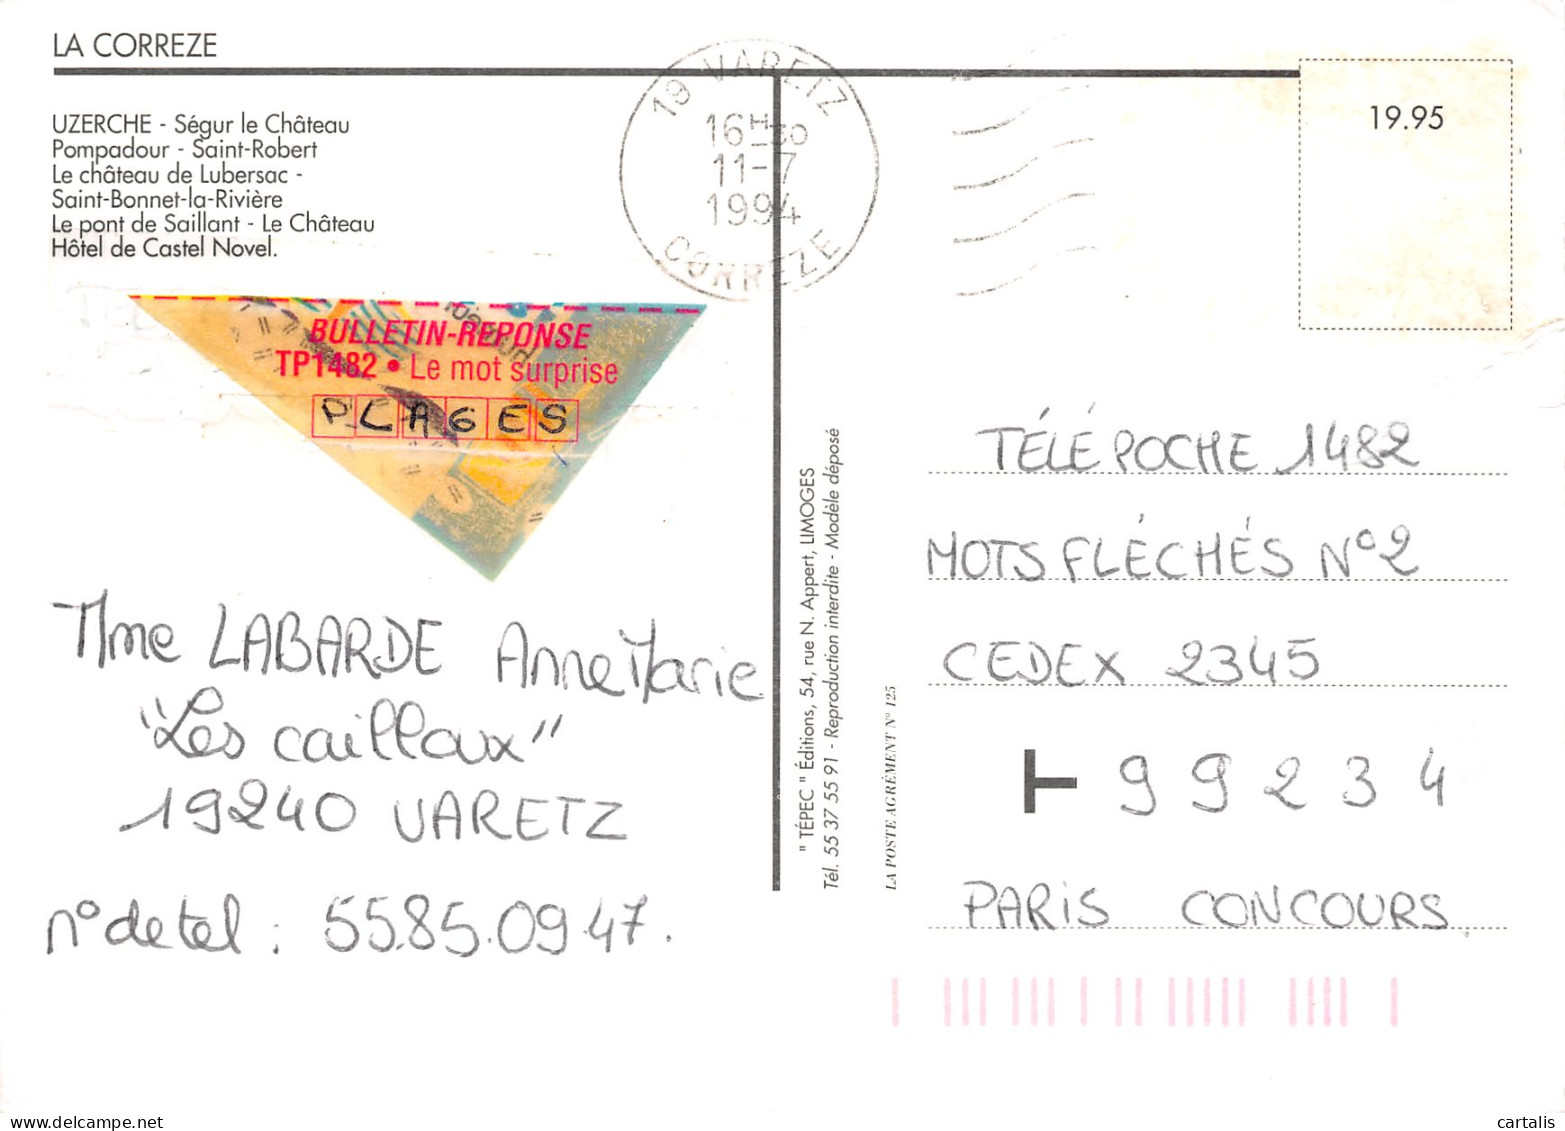 LA CORREZE
UZERCHE - Ségur le Château
Pompadour - Saint-Robert
Le château de Lubersac -
Saint-Bonnet-la-Rivière
Le pont de Saillant - Le Château
Hôtel de Castel Novel.
19 VARETZ
16H30
11-7
1994
CORREZE
19.95
BULLETIN-REPONSE
TP1482 • Le mot surprise
PLAGES
Mme LABARDE Anne Marie
"Les caillaux"
19240 VARETZ
n° de tel : 55.85.09.47.
" TÉPEC " Éditions, 54, rue N. Appert, LIMOGES
Tél. 55 37 55 91 - Reproduction interdite - Modèle déposé
LA POSTE AGRÉMENT N° 125
TÉLÉ POCHE 1482
MOTS FLÉCHÉS N°2
CEDEX 2345
T 99234
PARIS CONCOURS
delcampe.net
cartalis